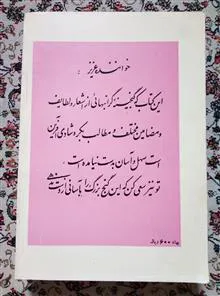 خوانندهٔ عزیز :
این کتاب که گنجینهٔ گرانبهائی از اشعار و لطایف
و مضامین مختلف و مطالب بکر و شادی آفرین
است سهل و آسان بدست نیامده است
تو نیز سعی کن که این گنج بزرگ را بآسانی از دست
بهاء ۶۰۰ ریال